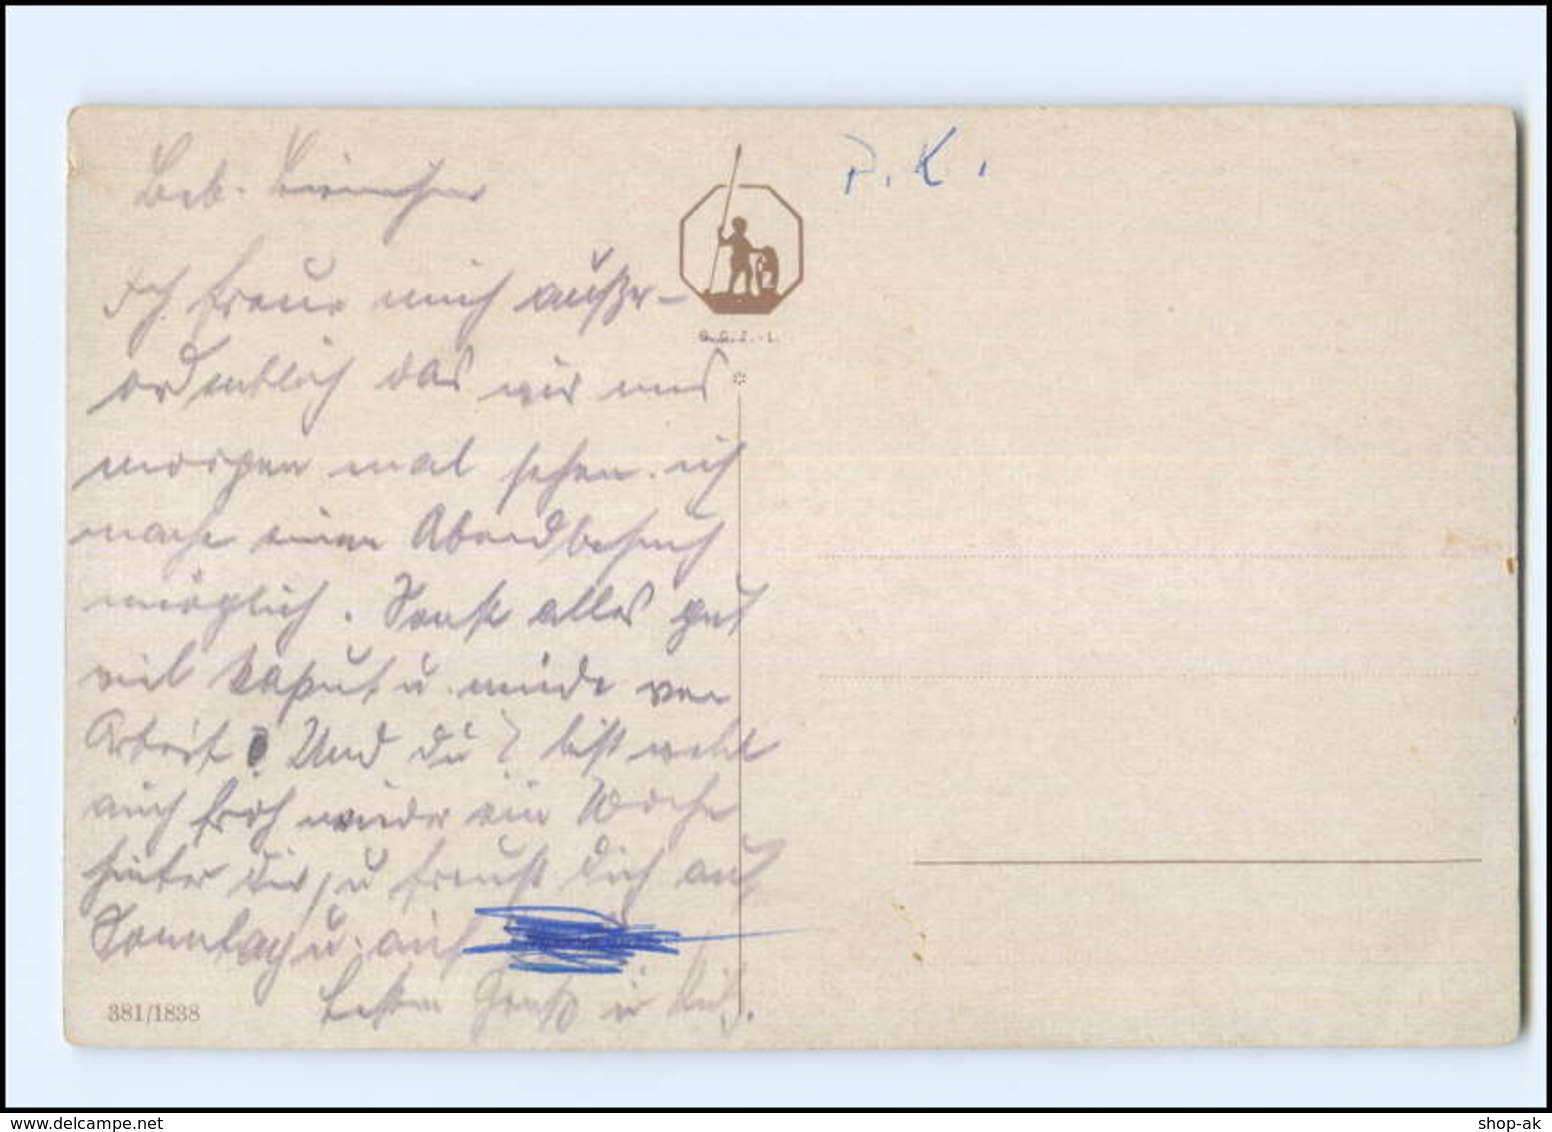 Lieb.
Ich freue mich außer-
ordentlich das wir uns
morgen mal sehen. ich
mache einen Abendbesuch
möglich. Sonst alles gut
viel kaput u. müde von
Arbeit! Und du? bist wohl
auch froh wieder ein Woche
hinter Dir, u freust dich auf
Sonntag u. auf
besten Gruß u
P. K.
G.G.Z.-L.
381/1838
shop-ak